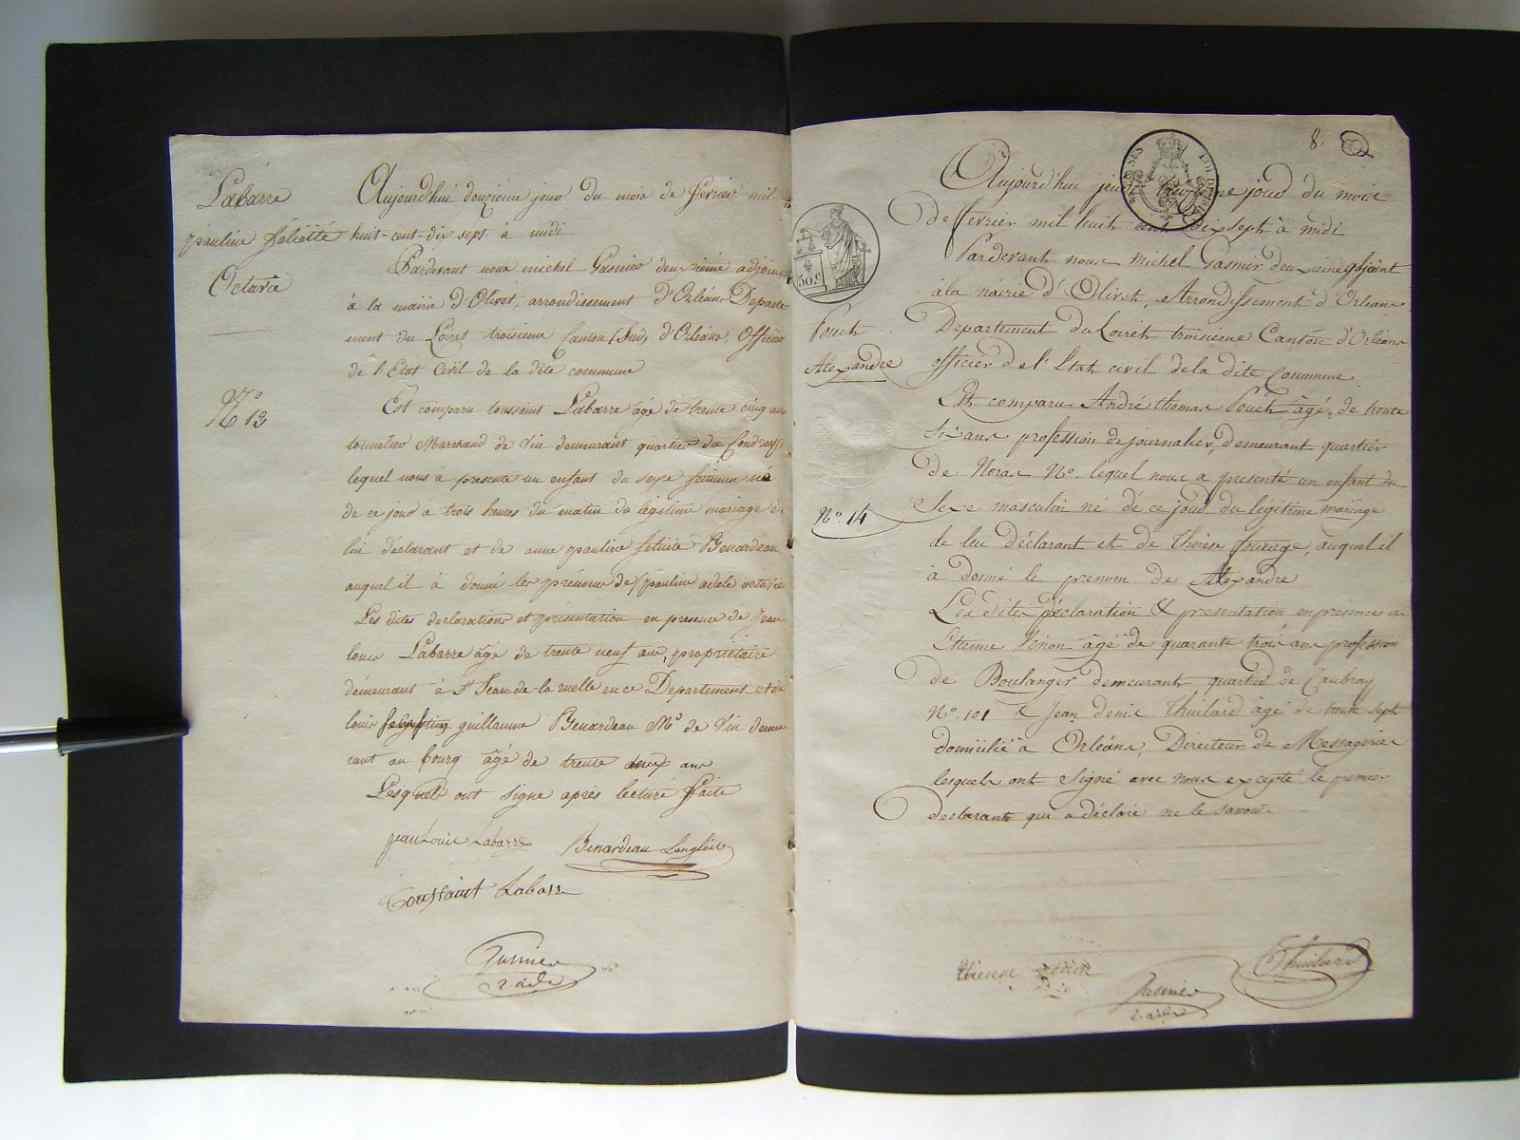 Labarre
pauline
Octavie
N° 13
Aujourd'hui douzieme jour du mois de fevrier mil
huit-cent-dix sept à midi
Pardevant nous michel Gasnier deuxieme adjoint
à la mairie d'Olivet, arrondissement d'Orléans Departe
ment du Loiret troisieme Canton (Sud) d'Orléans, Officier
de l'Etat Civil de la dite commune
Est comparu toussaint Labarre âgé de trente cinq ans
tonnelier Marchand de Vin demeurant quartier du
lequel nous à presenté un enfant du sexe feminin né
de ce jour a trois heures du matin du légitime mariage de
lui déclarant et de anne pauline felicité Benardeau
auquel il à donné les prénoms de pauline adele octavie
Les dites declaration et présentation en presence de Jean
louis Labarre âgé de trente neuf ans, propriétaire
demeurant à St Jean de la ruelle en ce Departement et de
louis guillaume Benardeau Md de Vin demeu
rant au bourg âgé de trente deux ans
Lesquels ont signé après lecture faite
jean Louis Labarre
Benardeau Langlois
Toussaint Labarre
Gasnier
2 adj
8.
50 c
Aujourd'hui jour du mois
de fevrier mil huit cent dix sept à midi
Pardevant nous michel Gasnier deuxieme adjoint
à la mairie d'Olivet, Arrondissement d'Orleans
Departement du Loiret troisieme Canton d'Orléans
officier de l'Etat civil de la dite Commune
Fouch
Alexandre
N° 14
Est comparu André thomas Fouch âgé de trente
six ans profession de journalier, demeurant quartier
de Noras N° lequel nous a presenté un enfant du
Sexe masculin né de ce jour du legitime mariage
de lui déclarant et de therese, auquel il
à donné le prenom de Alexandre
Les dites déclaration & presentation en présence de
Etienne âgé de quarante trois ans profession
de Boulanger demeurant quartier de Caubray
N° 101 & Jean denis thuilard âgé de trente sept
domicilié à Orléans, Directeur de Messagerie
lesquels ont signé avec nous excepté le premier
declarant qui a déclaré ne le savoir
Etienne
Gasnier
2. adj
Thuilard